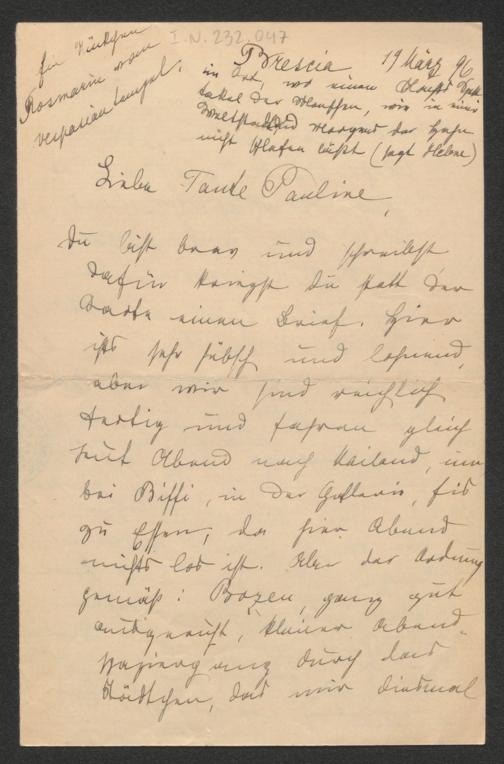 für Dückchen
Rosmarin vom
Vespasian tempel.
I.N. 232.047
Brescia 19 März 96
im Ort, wo einen Abends
der Menschen, wie in einer
Weltstadt und Morgens der Hahn
nicht schlafen läßt (sagt Helene)
Liebe Tante Pauline,
Du bist brav und schreibst
dafür kriegst Du statt der
Karte einen Brief. Hier
ists sehr hübsch und lohnend,
aber wir sind reichlich
fertig und fahren gleich
heut Abend nach Mailand, um
bei Biffi, in der Gallerie, Eis
zu Essen, da hier Abend
nichts los ist. Aber der Ordnung
gemäß: Bozen, ganz gut
ausgeruht, kleiner Abend-
spaziergang durch das
Städtchen, das mir diesmal